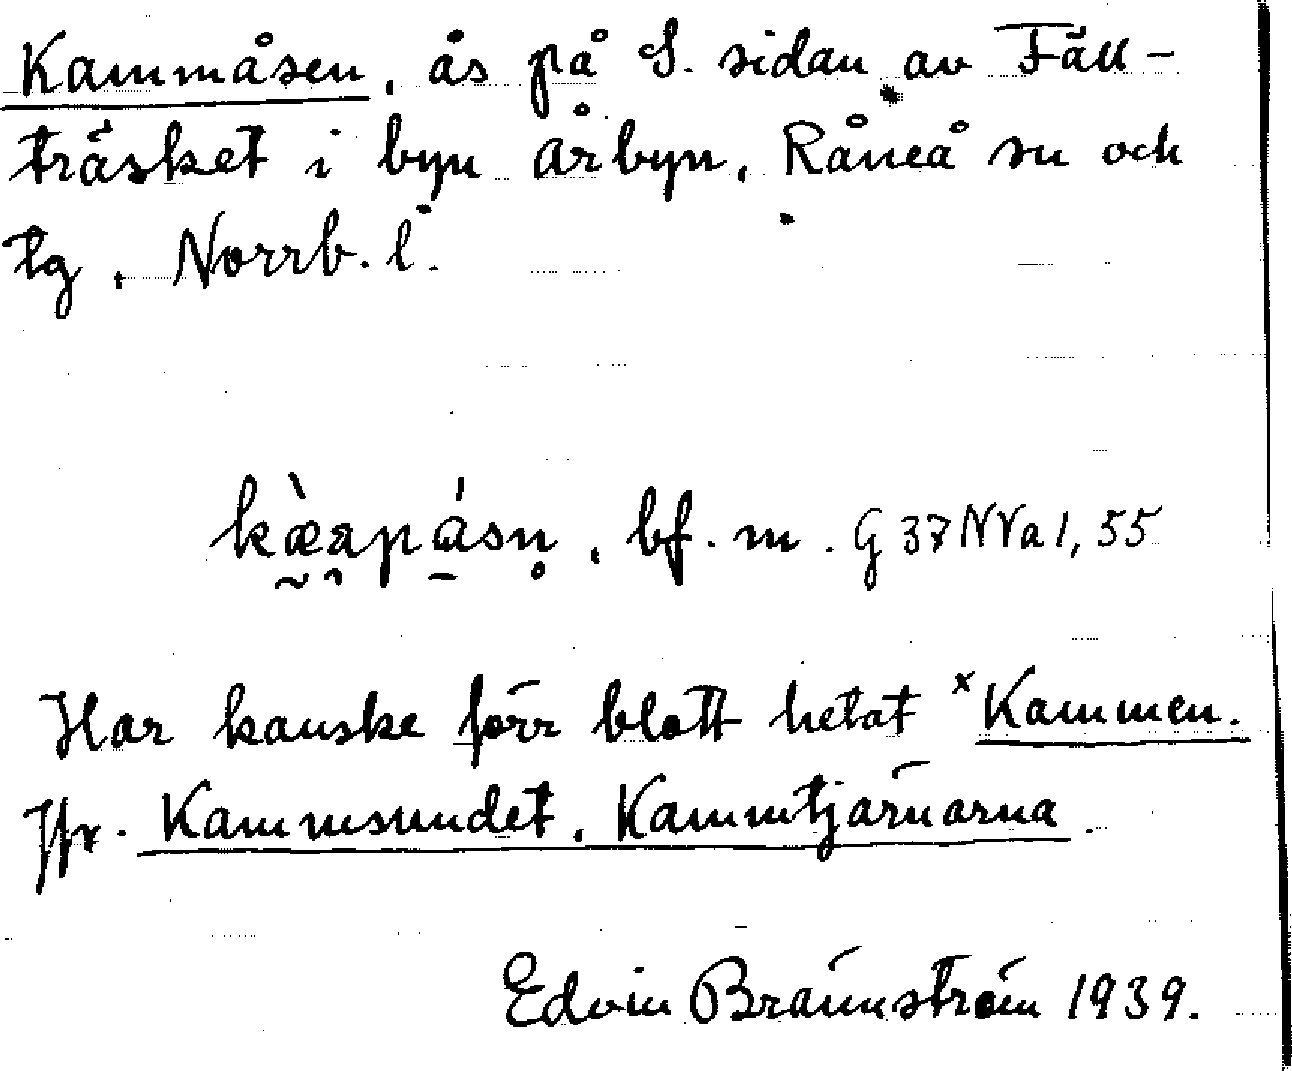 Kammåsen, ås på S. sidan av Fäll-
träsket i byn Årbyn, Råneå sn och
tg, Norrb. l.
bf. m. G 37 NVa 1, 55
Har kanske förr blott hetat ˣKammen.
Jfr. Kammsundet, Kammtjärnarna.
Edvin Brännström 1939.